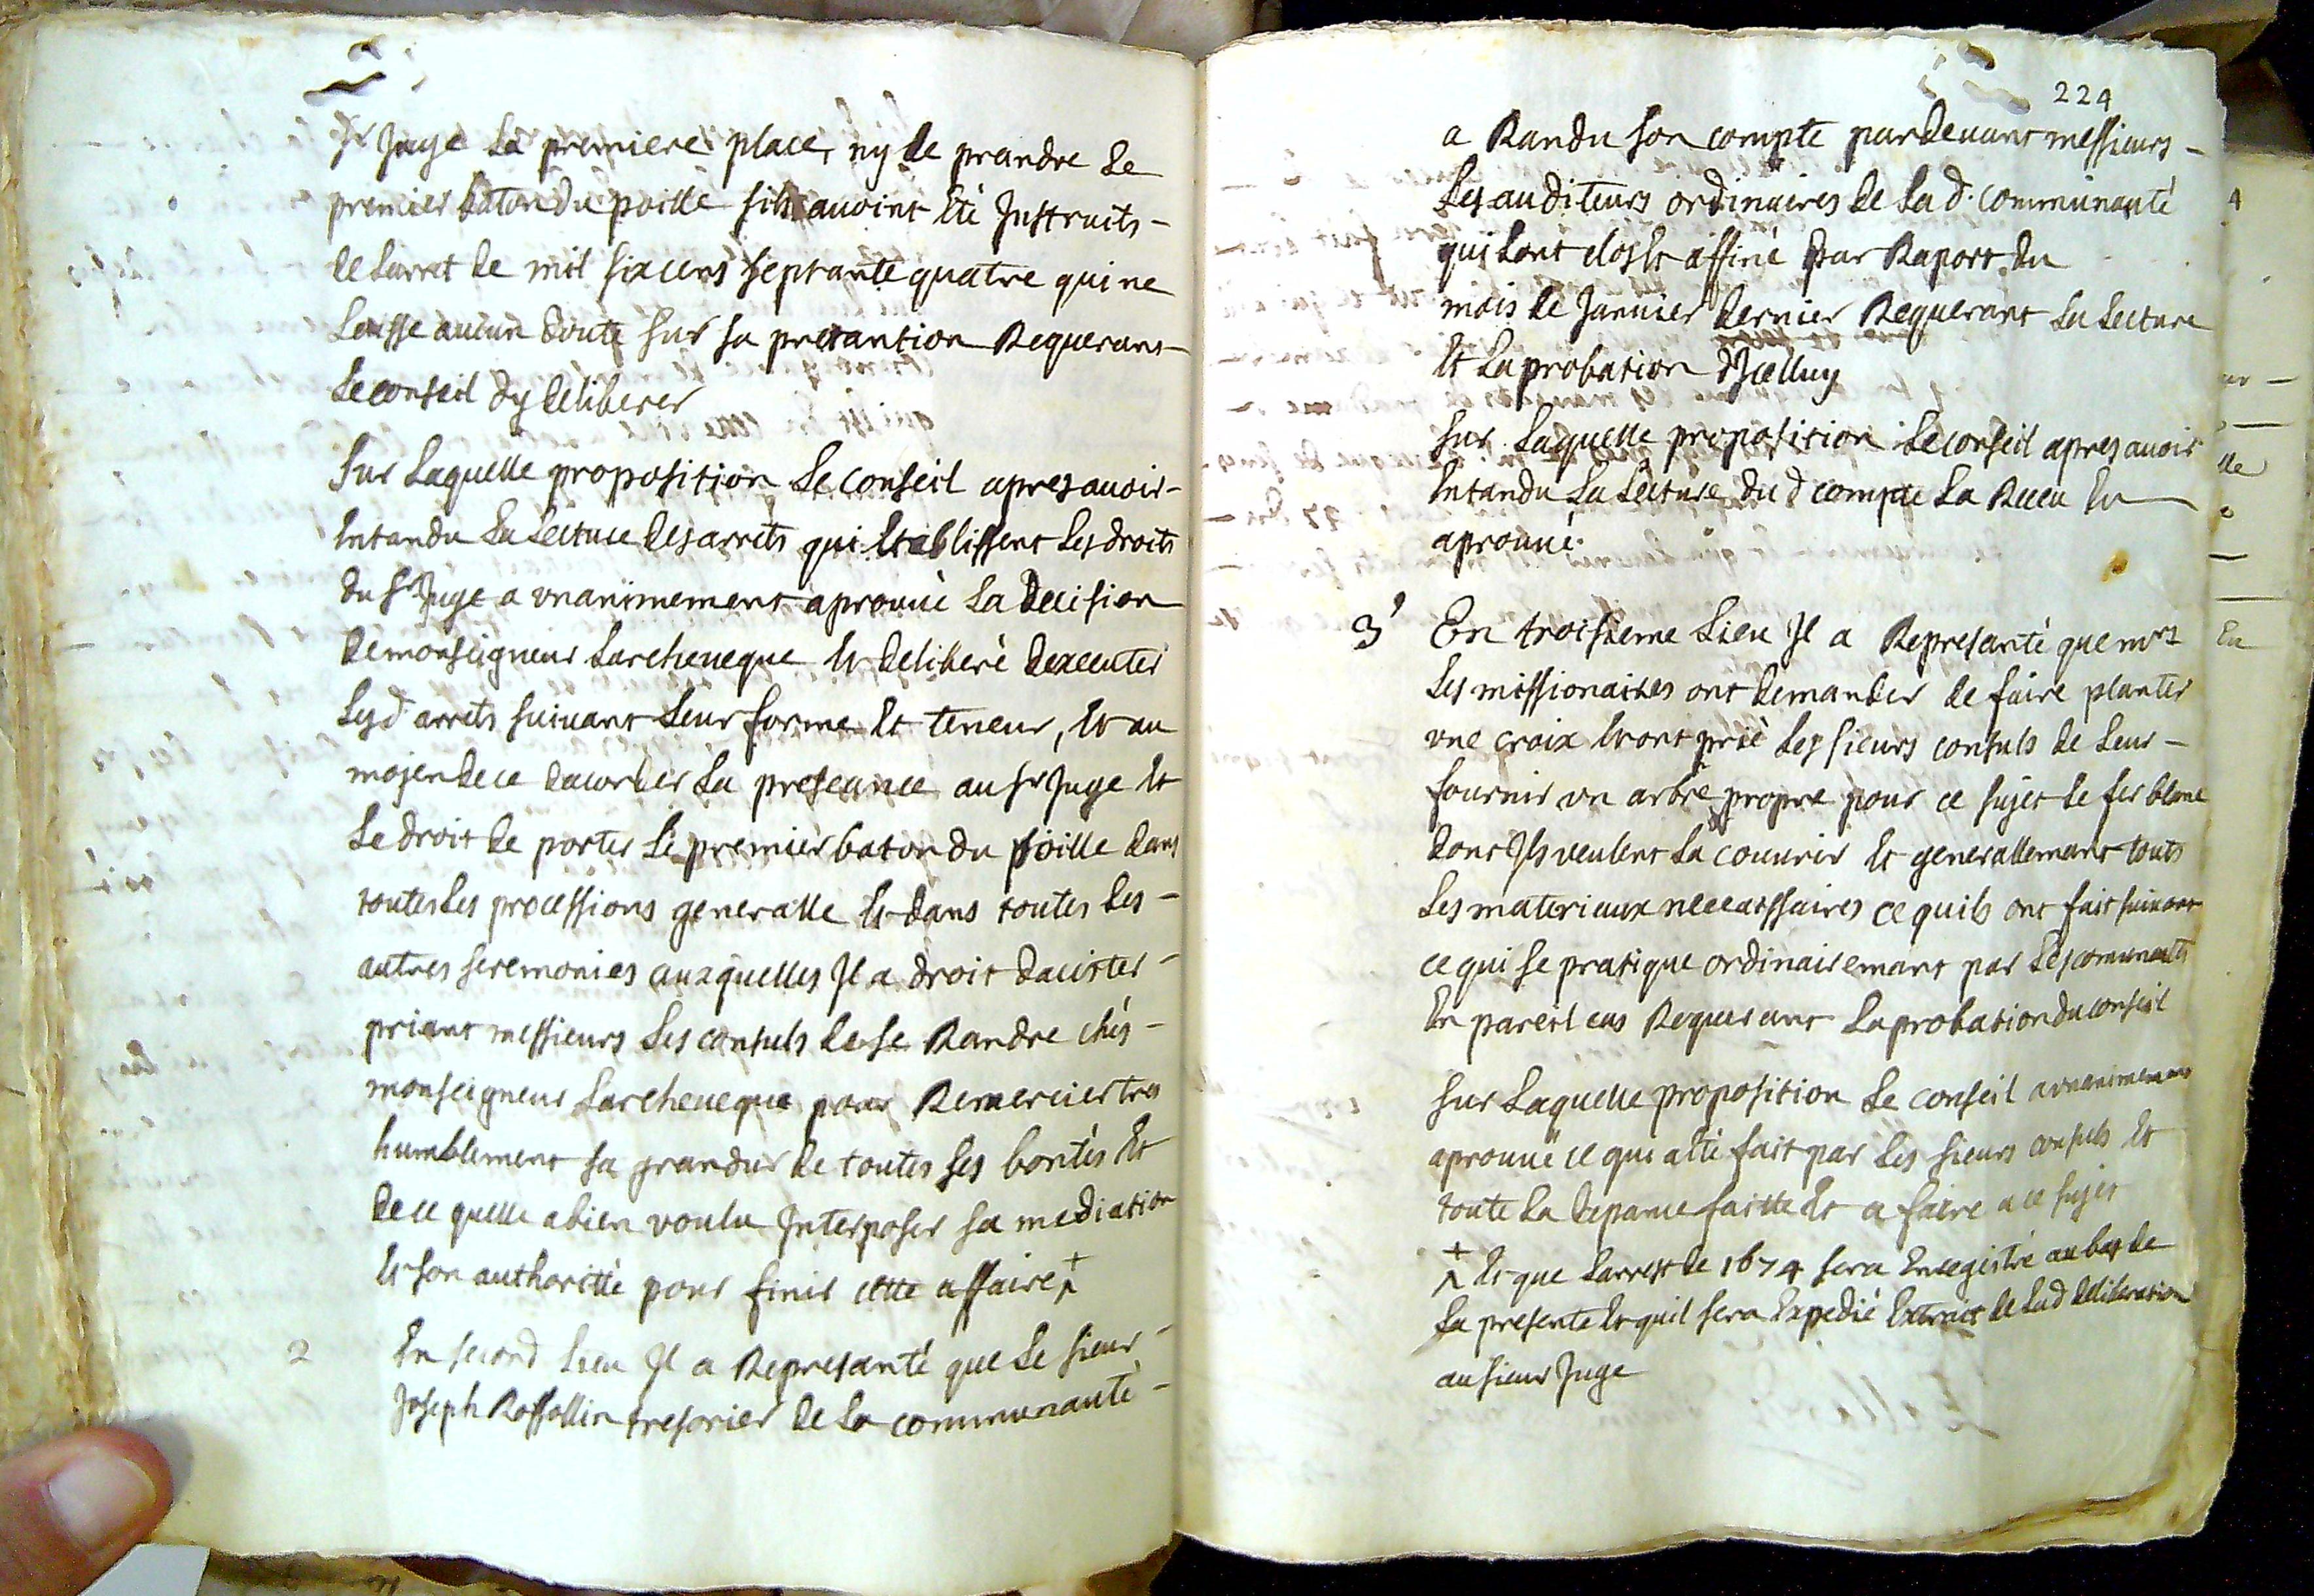 Sr Juge La premiere place, ny de prandre Le
premier baton du poille sils avoint Eté Instruits -
de Larret de mil six cens septante quatre qui ne
Laisse aucun doute sur sa pretantion Requerant
Le conseil dy deliberer
Sur Laquelle proposition Le conseil apres avoir -
Entandu La Lecture des arrets qui Etablissent Les droits
du Sr Juge a vnanimement aprouué La decision
de monseigneur Larcheueque Et deliberé dexecuter
Lesd arrets suivant Leur forme Et teneur, Et au
mojen de ce dacorder La preseance au Sr Juge Et
Le droit de porter Le premier baton du poille dans
toutes Les processions generalle Et dans toutes Les -
autres seremonies auxquelles Il a droit dacister -
priant messieurs Les consuls de se Randre chés -
monseigneur Larcheueque pour Remercier tres
humblement sa grandur de toutes ses bontés Et
de ce quelle a bien voulu Interposer sa mediation
Et son authoritté pour finir cette affaire +
2 En second Lieu Il a Represanté que Le sieur -
Joseph Rossollin tresorier de La communauté -
224
a Randu son compte pardeuant messieurs -
Les auditeurs ordinaires de Lad. communauté
qui Lont clos Et affiné par Raport du
mois de Januier dernier Requerant La Lecture
Et Laprobation dIcelluy
Sur Laquelle proposition Le conseil apres avoir
Entandu La Lecture dud compte La Receu Et
aprouué.
3' En troisieme Lieu Il a Represanté que mrs
Les missionaires ont demander de faire planter
vne croix Et ont prié Les sieurs consuls de Leur -
fournir vn arbre propre pour ce sujet Le fer blanc
dont Ils veulent La couurir Et generallemant touts
Les materiaux necessaires ce quils ont fait suiuant
ce qui se pratique ordinairemant par Les comunautés
En pareil cas Requerant Laprobation du conseil
Sur Laquelle proposition Le conseil a vnanimemant
aprouué ce qui a Eté fait par Les sieurs consuls Et
toute La depance faitte Et a faire a ce sujet
+ Et que Larrest de 1674 sera Enregistré au bas de
La presente Et quil sera Expedié Extrait de Lad deliberation
au sieur Juge